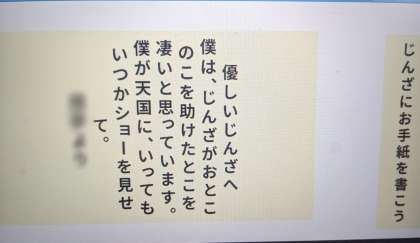 じんざにお手紙を書こう
優しいじんざへ
僕は、じんざがおとこ
のこを助けたとこを
凄いと思っています。
僕が天国に、いっても
いつかショーを見せ
て。